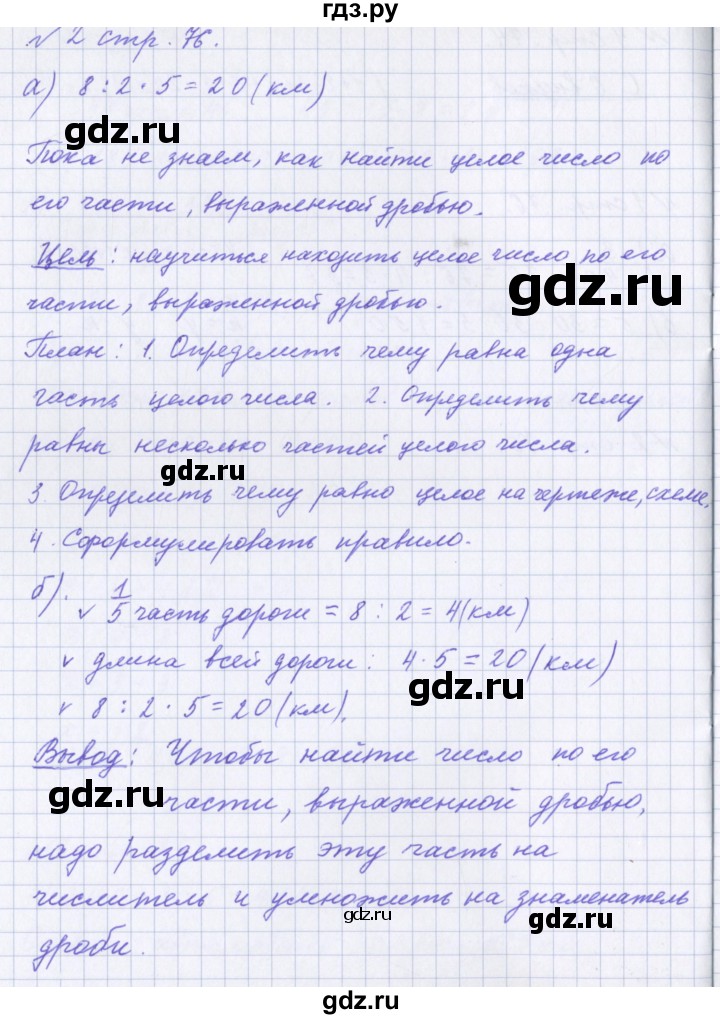 гдз.ру
№ 2 стр. 76.
а) 8 : 2 · 5 = 20 (км)
gdz.ru
Пока не знаем, как найти целое число по
его части, выраженной дробью.
Цель: научиться находить целое число по его
gdz.ru
части, выраженной дробью.
План: 1. Определить чему равна одна
часть целого числа. 2. Определить чему
равны несколько частей целого числа.
gdz.ru
3. Определить чему равно целое на чертеже, схеме.
4. Сформулировать правило.
б). √ 1/5 часть дороги = 8 : 2 = 4 (км)
√ длина всей дороги: 4 · 5 = 20 (км)
gdz.ru
√ 8 : 2 · 5 = 20 (км).
Вывод: Чтобы найти число по его
gdz.ru
части, выраженной дробью,
надо разделить эту часть на
числитель и умножить на знаменатель
gdz.ru
дроби.
gdz.ru